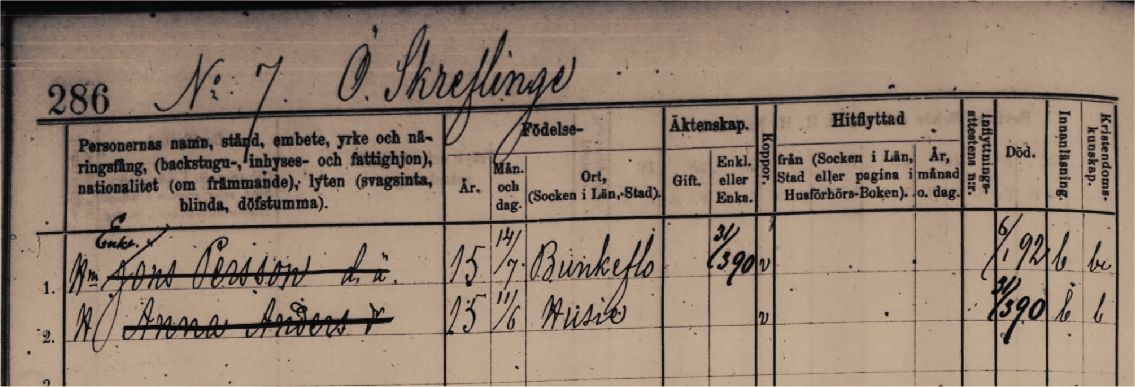 286 No 7. Ö. Skreflinge
Personernas namn, stånd, embete, yrke och nä-
ringsfång, (backstugu-, inhyses- och fattighjon),
nationalitet (om främmande), lyten (svagsinta,
blinda, döfstumma).
Födelse-
År.
Mån.
och
dag.
Ort,
(Socken i Län,-Stad).
Äktenskap.
Gift.
Enkl.
eller
Enka.
Koppor.
Hitflyttad
från (Socken i Län,
Stad eller pagina i
Husförhörs-Boken).
År,
månad
o. dag.
Inflyttnings-
attestens n:r.
Död.
Innanläsning.
Kristendoms-
kunskap.
Enkr.
1. Hm Jöns Persson d. ä. 15 14/7 Bunkeflo 31/390 v 6/1 92 b bc
2. H Anna Andersdr 25 11/6 Husie v 31/390 b b